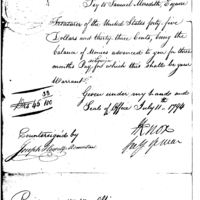 Pay to Samuel Meredith Esquire
Treasurer of the United States forty five
Dollars and thirty three Cents, being the
balance of Monies advanced to you for three
months Pay, for which this shall be your
Warrant.
Given under my hand and
Seal of Office July 11th 1794
Dlls 45 33/100
Countersigned by
Joseph Howell
HKnox
Secy of War